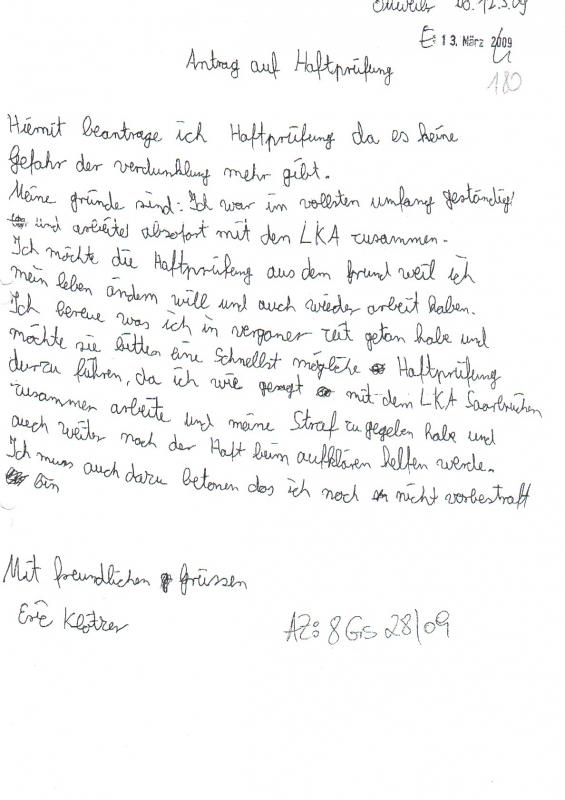 Ottweiler Do. 12.3.09
E: 13. März 2009
180
Antrag auf Haftprüfung
Hiermit beantrage ich Haftprüfung da es keine
Gefahr der verdunklung mehr gibt.
Meine gründe sind: Ich war im vollsten umfang geständig
und arbeite absofort mit den LKA zusammen.
Ich möchte die Haftprüfung aus dem grund weil ich
mein leben ändern will und auch wieder arbeit haben.
Ich bereue was ich in verganer zeit getan habe und
möchte sie bitten eine Schnellst mögliche Haftprüfung
durzu führen, da ich wie gesagt mit dem LKA Saarbrüken
zusammen arbeite und meine Straf zu gegeben habe und
auch weiter noch der Haft beim aufklären helfen werde.
Ich muss auch dazu betonen das ich noch nicht vorbestraft
bin
Mit freundlichen grüssen
Eric Klötzer
AZ: 8 Gs 28/09